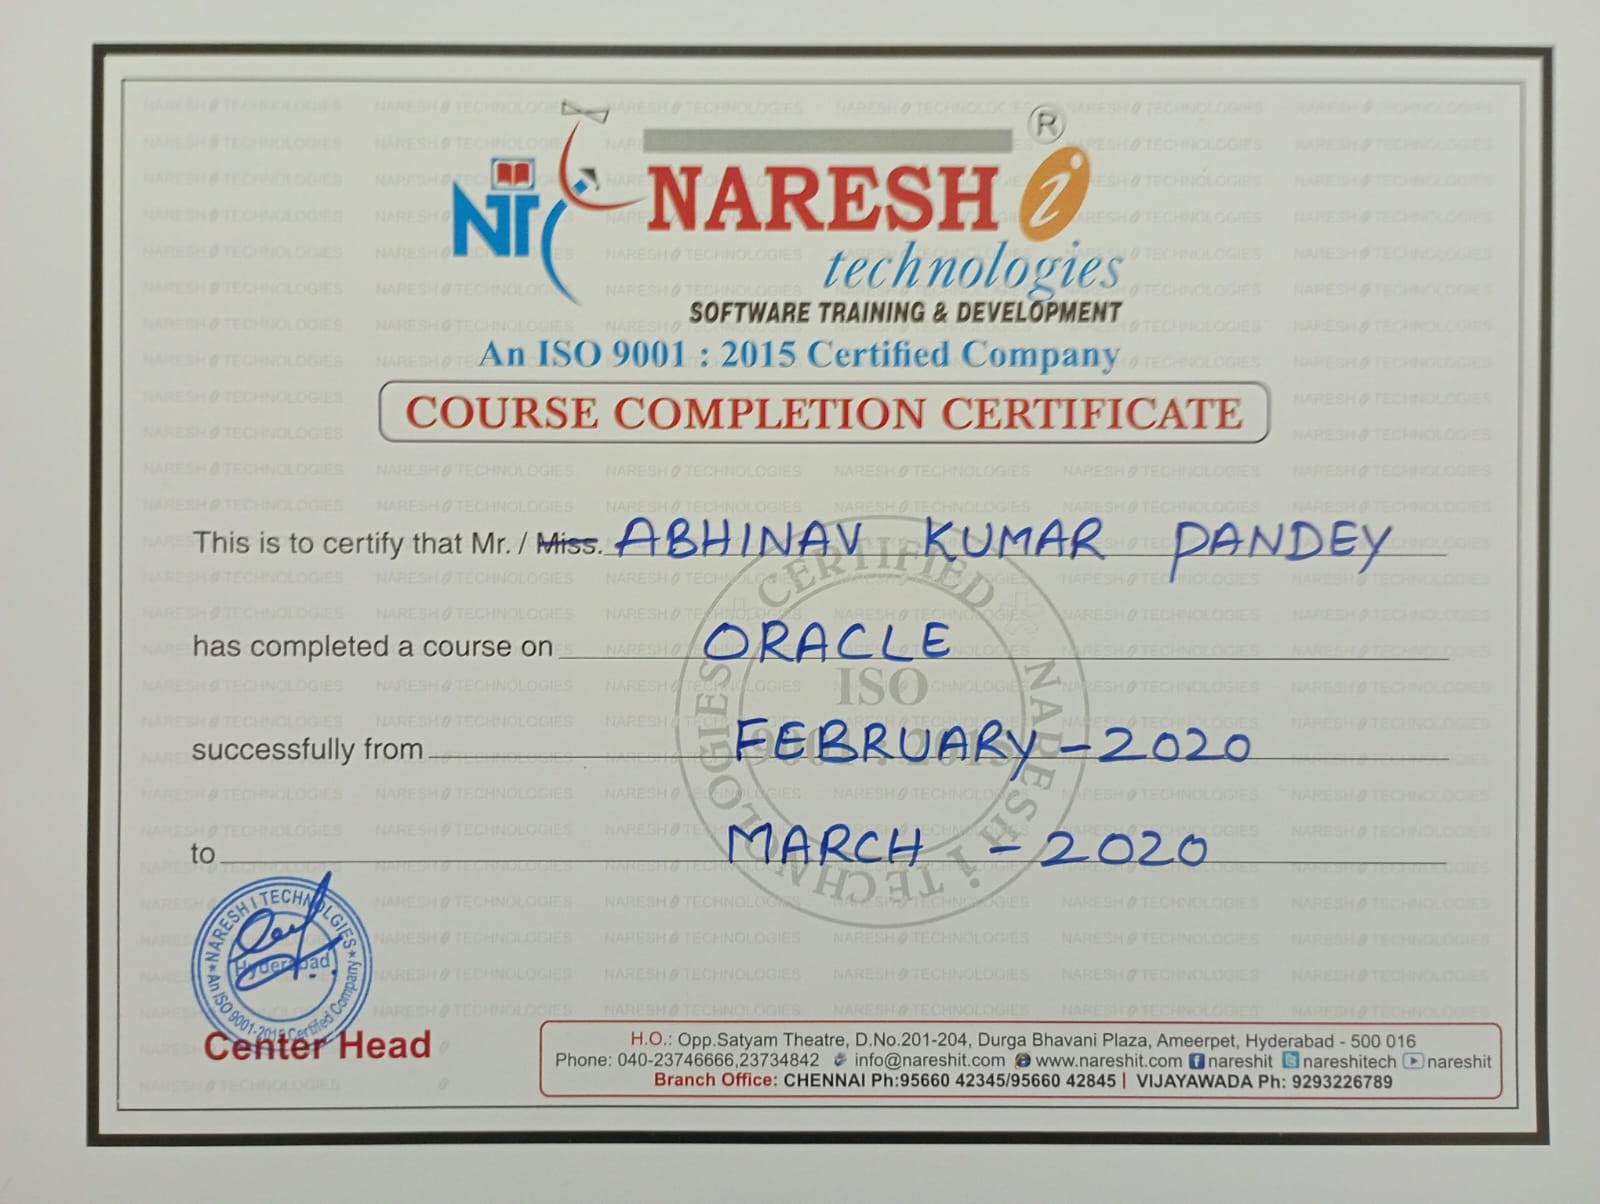 NT
NARESH i ®
technologies
SOFTWARE TRAINING & DEVELOPMENT
An ISO 9001 : 2015 Certified Company
COURSE COMPLETION CERTIFICATE
This is to certify that Mr. / Miss. ABHINAV KUMAR PANDEY
has completed a course on ORACLE
successfully from FEBRUARY - 2020
to MARCH - 2020
CERTIFIED
NARESH i TECHNOLOGIES
ISO
9001 : 2015
NARESH I TECHNOLOGIES
Hyderabad
An ISO 9001-2015 Certified Company
Center Head
H.O.: Opp.Satyam Theatre, D.No.201-204, Durga Bhavani Plaza, Ameerpet, Hyderabad - 500 016
Phone: 040-23746666,23734842 info@nareshit.com www.nareshit.com nareshit nareshitech nareshit
Branch Office: CHENNAI Ph:95660 42345/95660 42845 | VIJAYAWADA Ph: 9293226789